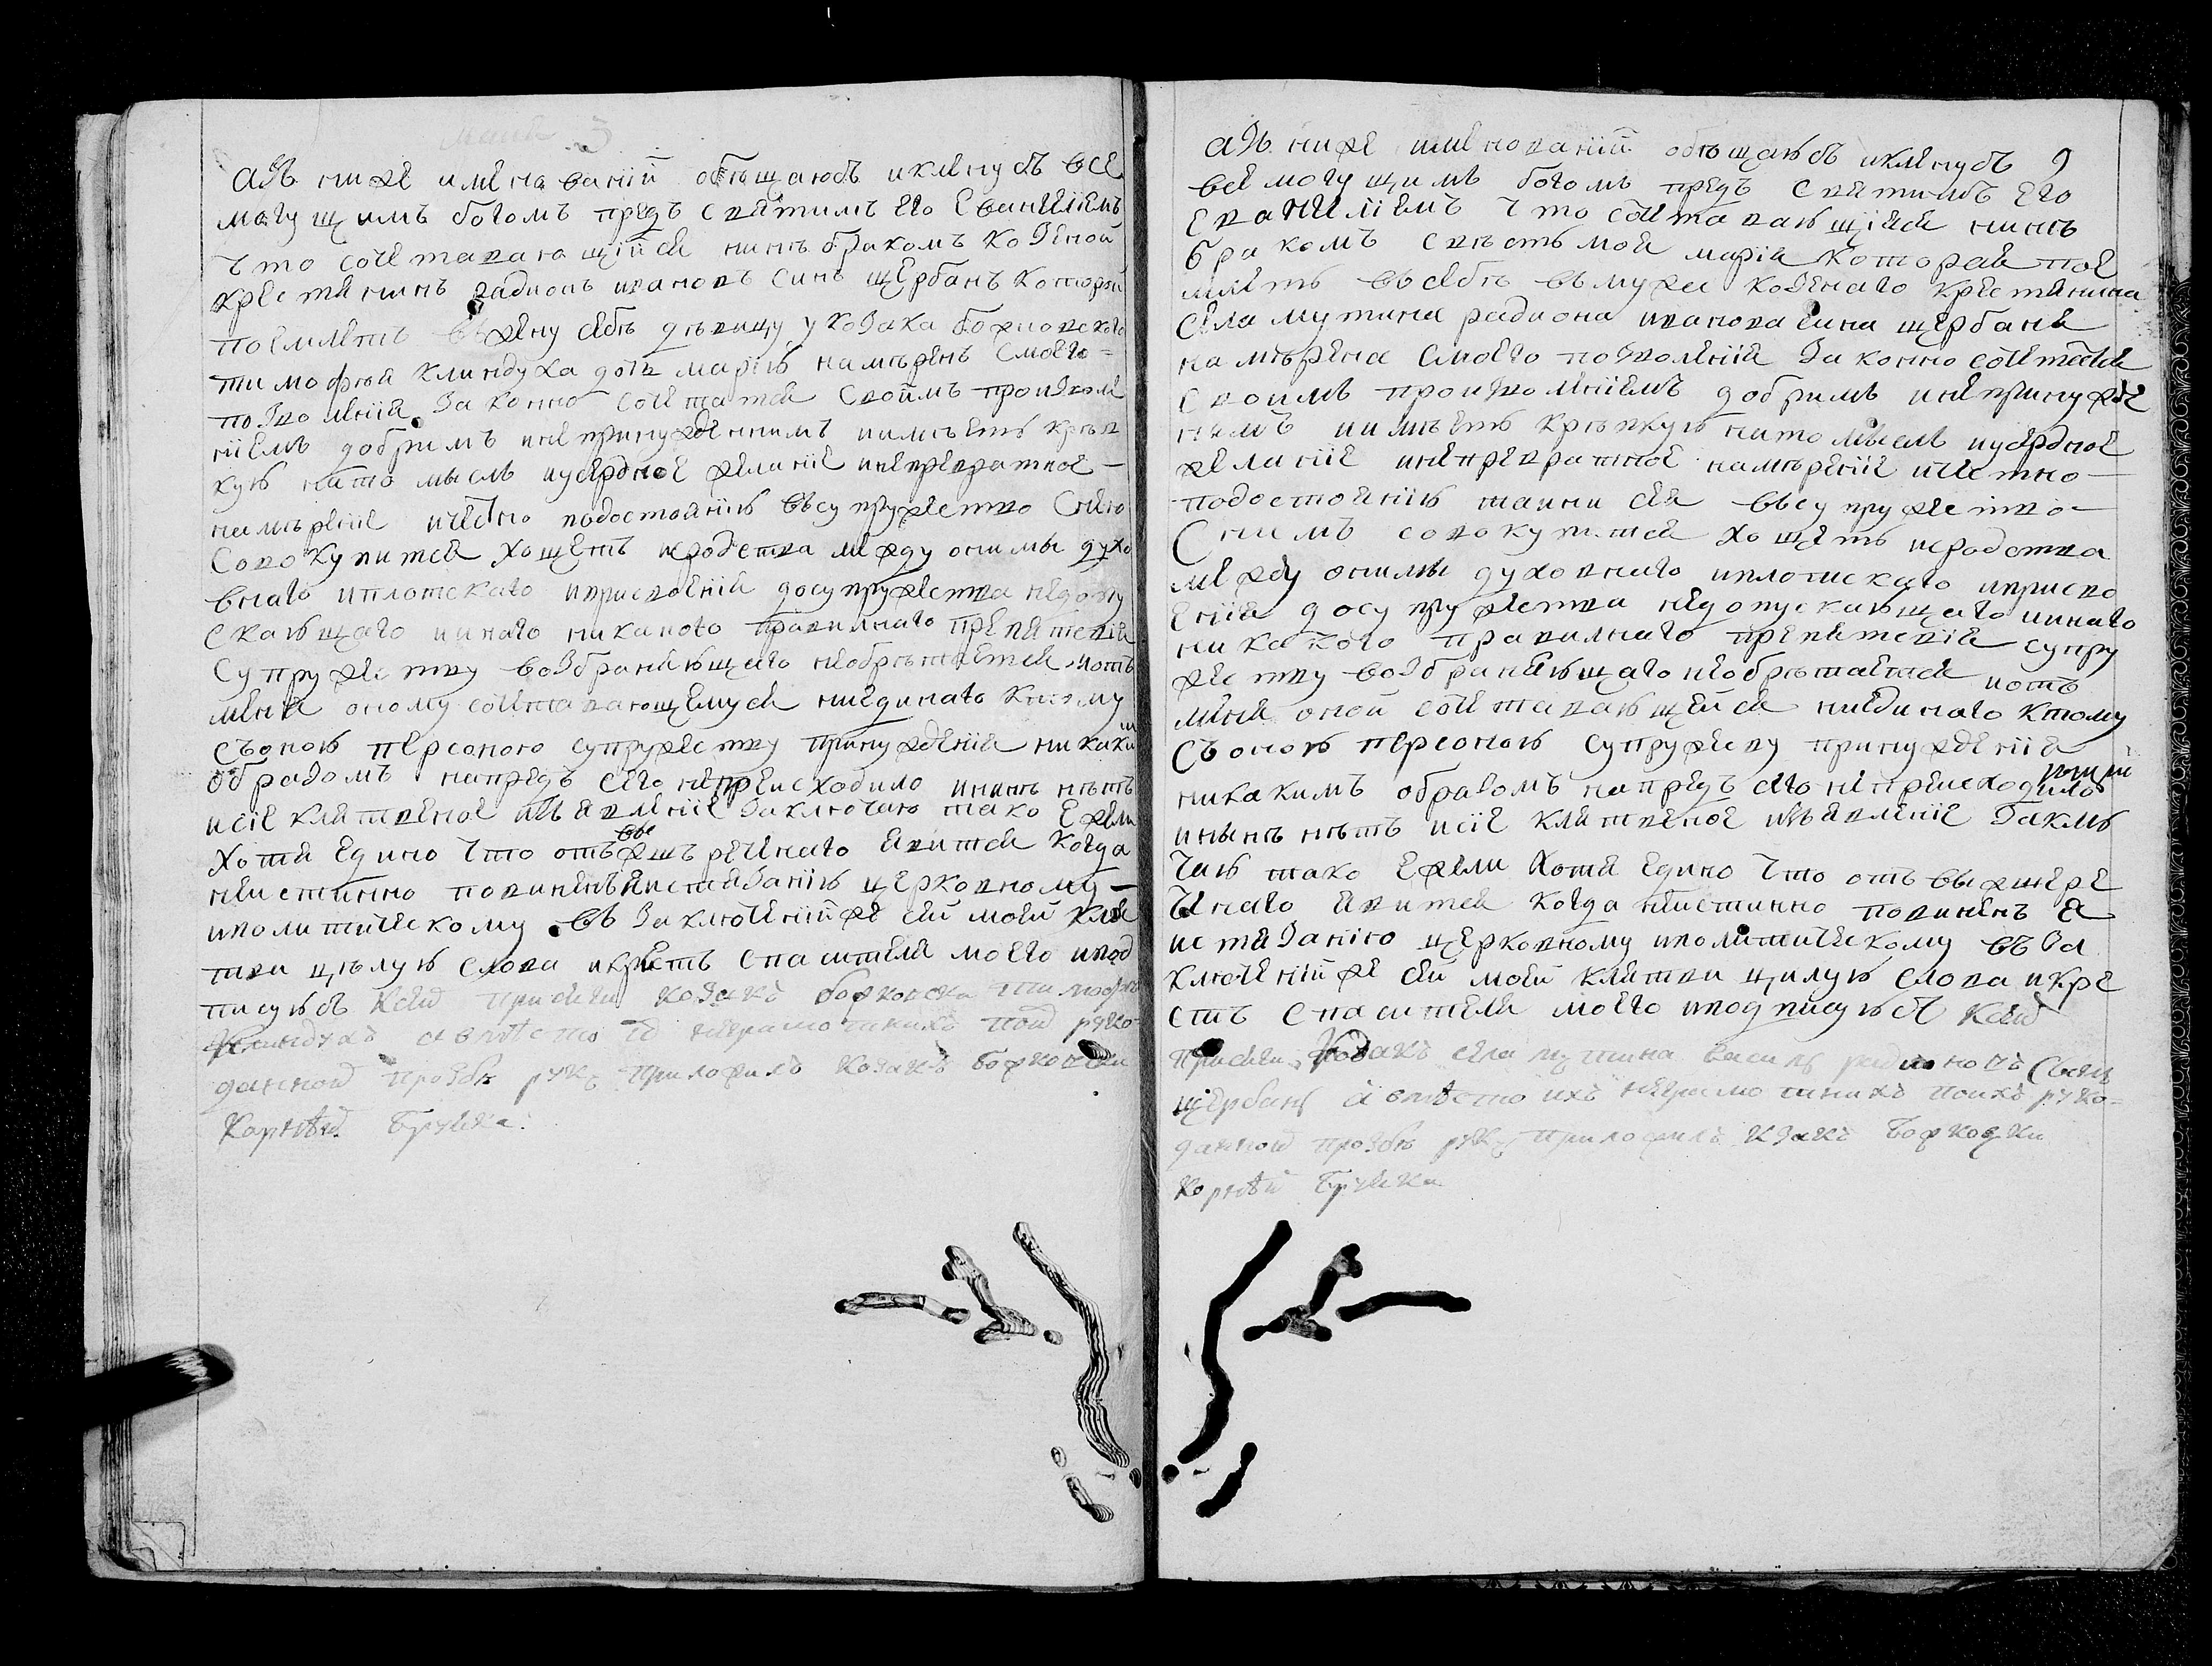 азъ ниже именаваній обѣщаюсь иклянусь все
могущимъ богомъ предъ святимъ его Евангеліемъ
что сочетавающійся нинѣ бракомъ козеной
крестянинъ радионъ ивановъ синъ щербанъ которой
поемлетъ вжену себѣ дѣвицу у козака боржовского
тимофѣя климдуха дочь марію намѣренъ смоего
позволенія законно сочетатся своймъ произволе
ніемъ добримъ инепринужденнимъ иимѣетъ крѣп
кую нато мысль иусердное желаніе инепревратное
намѣреніе ичесно подостоянію въсупружество снею
совокупится хощетъ иродства между оними духо
внаго иплотскаго иприсвоенія досупружества недопу
скающаго иинаго никакого правилнаго препятствія
супружеству возбраняющаго необрѣтается иотъ
мене оному сочетавающемуся ниединаго ктому
съоною персоною супружеству принужденія никаки
образомъ напредъ сего непреисходило ининѣ нѣтъ
исіе клятвеное изъявленіе заключаю тако ежели
хотя едино что отъ вышъ реченаго явится когда
неистинно повиненъ я истязанію церковному
иполитическому въ заключеніиже сей моей кля
тви цѣлую слова икрестъ спасителя моего ипод
писуюсь Ксей присяги козакъ боржовски тимофѣ
климдухъ авмѣсто его неграмотнихъ поей руко
данной прозбѣ руку приложилъ козакъ боржовски
Корнѣй
9
азъ ниже именованій обѣщаюсь иклянусь
всемогущимъ богомъ предъ святимъ его
евангеліемъ что сочетавающіяся нинѣ
бракомъ свѣсть моя марія которая пое
млетъ всебѣ въмужа козенаго крестянина
села мутина радиона иванова сина щербаня
намѣрена смоего позволенія законно сочетатся
своимъ произволеніемъ добримъ инепринужде
нимъ иимѣетъ крѣпкую нато мысль иусердное
желаніе инепревратное намѣреніе ичестно
подостоянію таини сея въсупружество
снимъ совокупится хощетъ иродства
между оними духовнаго иплотскаго иприсво
енія досупружества недопускающаго иинаго
никакого правилнаго препятствія супру
жеству возбраняющаго необрѣтается иотъ
мене оной сочетавающейся ниединаго ктому
съоною персоною супружеву принужденія
никакимъ образомъ напредъ сего непреисходило
инынѣ нѣтъ исіе клятвеное изъявленіе заклю
чаю тако ежели хотя едино что отъ вышере
ченаго явится когда неистинно повиненъ я
истязанію церковному иполитическому въ за
ключеніиже сей моей клятви цилую слова икре
стъ спасителя моего иподписуюсь Ксей
присяги козакъ села мутина василь радионовъ
щербань авмѣсто ихъ неграмотнихъ поихъ руко
данной прозбѣ руку приложилъ козакъ боржовски
Корнѣй